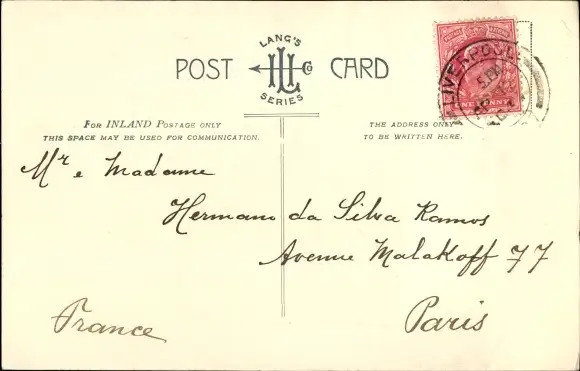 LANG'S
POST CARD
Co
SERIES
LIVERPOOL
ONE PENNY
FOR INLAND POSTAGE ONLY
THIS SPACE MAY BE USED FOR COMMUNICATION.
THE ADDRESS ONLY
TO BE WRITTEN HERE.
Mr e Madame
Hermano da Silva Ramos
Avenue Malakoff 77
France
Paris